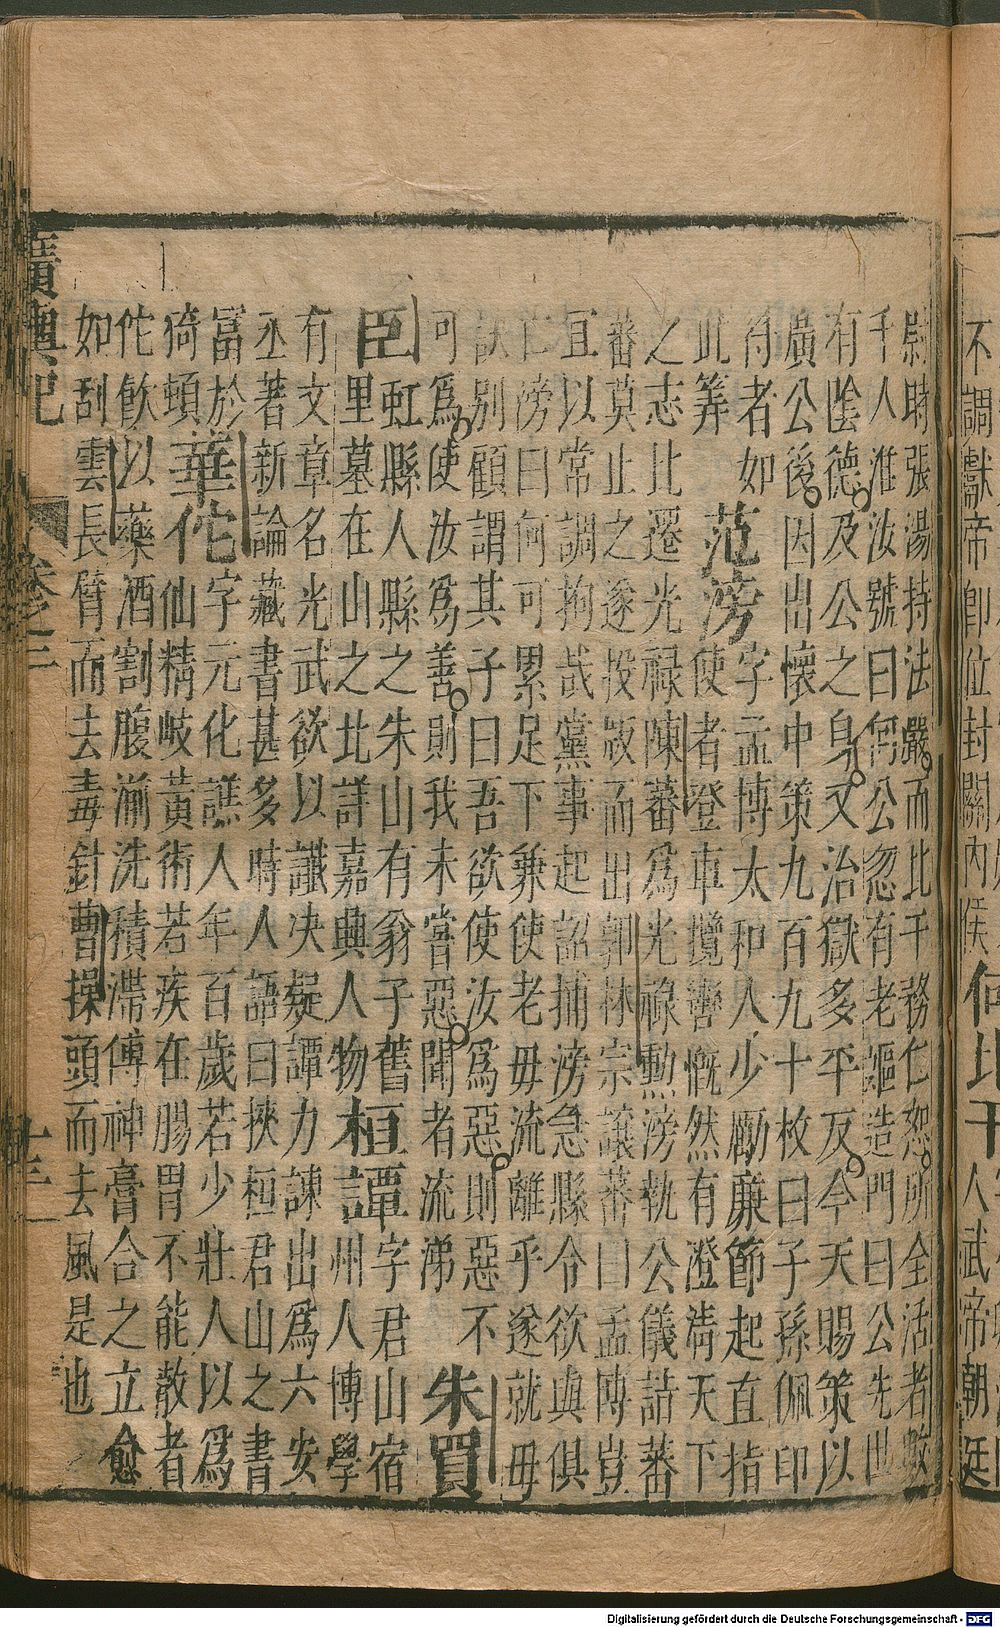 不調獻帝卽位封關內侯何比干人武帝朝廷
尉時張湯持法嚴而比干務仁恕所全活者數
千人淮汝號曰何公忽有老嫗造門曰公先世
有陰德及公之身又治獄多平反今天賜策以
廣公後因出懷中策九百九十枚曰子孫佩印
符者如此筭范滂字孟博太和人少勵廉節起直指
使者登車攬轡慨然有澄淸天下
之志比遷光祿陳蕃爲光祿勲滂執公儀詣蕃
蕃莫止之遂投版而出郭林宗讓蕃曰孟博豈
宜以常調拘哉黨事起詔捕滂急縣令欲與俱
亡滂曰何可累足下兼使老母流離乎遂就母
訣別顧謂其子曰吾欲使汝爲惡則惡不
可爲使汝爲善則我未嘗惡聞者流涕朱買
臣虹縣人縣之朱山有翁子舊
里墓在山之北詳嘉興人物桓譚字君山宿州人博學
有文章名光武欲以讖决疑譚力諫出爲六安
丞著新論藏書甚多時人語曰挾桓君山之書
富於猗頓華佗字元化譙人年百歲若少壯人以爲
仙精岐黃術若疾在腸胃不能散者
佗飮以藥酒割腹湔洗積滯傅神膏合之立愈
如刮雲長臂而去毒針曹操頭而去風是也
廣輿記
卷之三
十三
Digitalisierung gefördert durch die Deutsche Forschungsgemeinschaft - DFG